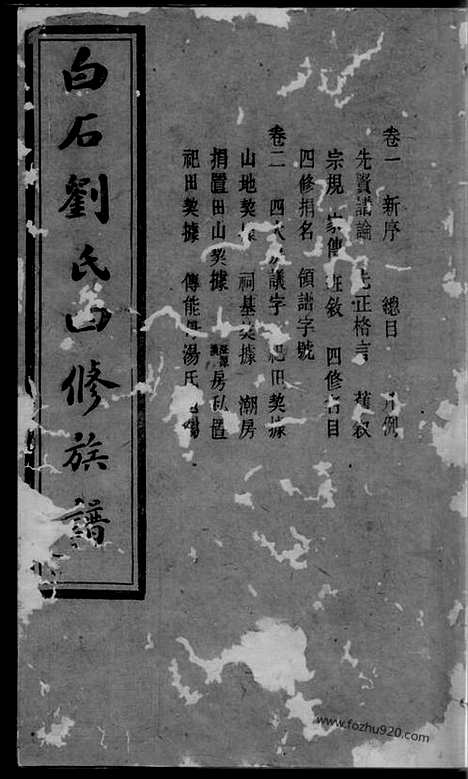 卷一 新序 總目 凡例
先賢譜論 先正格言 舊敘
宗規 家傳 班敘 四修名目
四修捐名 領譜字號
卷二 四次 議字 祀田契據
山地契據 祠基契據 潮房
捐置田山契據 房私置
祀田契據 傳能 湯氏
白石劉氏四修族譜
www.fozhu920.com